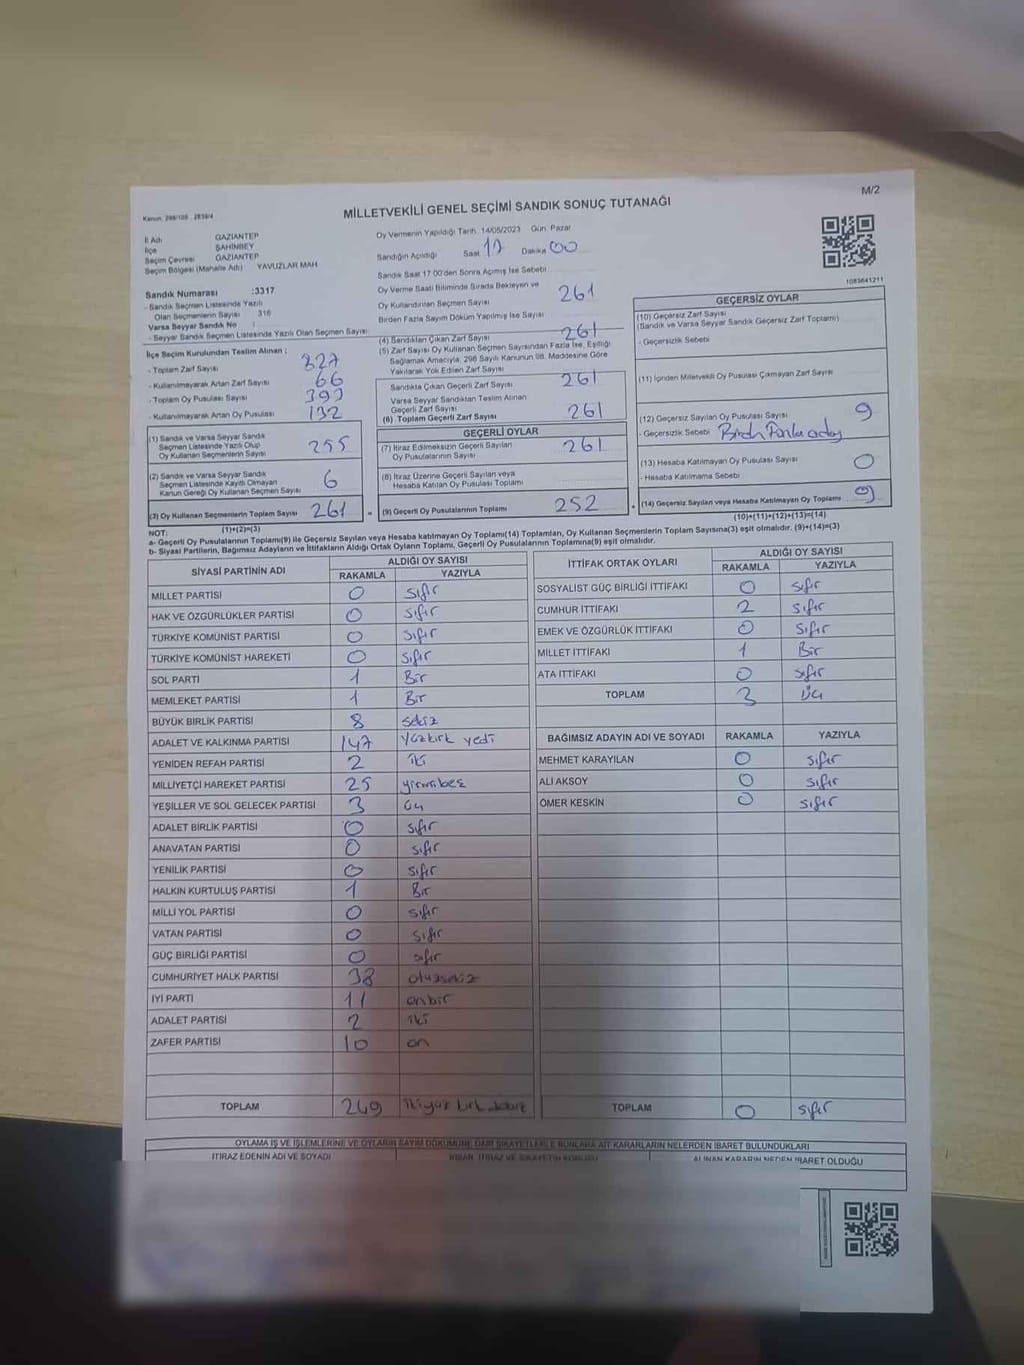 M/2
Kanun: 298/105 , 2839/4
MİLLETVEKİLİ GENEL SEÇİMİ SANDIK SONUÇ TUTANAĞI
İl Adı GAZİANTEP
İlçe ŞAHİNBEY
Seçim Çevresi GAZİANTEP
Seçim Bölgesi (Mahalle Adı) YAVUZLAR MAH
Sandık Numarası :3317
- Sandık Seçmen Listesinde Yazılı
Olan Seçmenlerin Sayısı 316
Varsa Seyyar Sandık No :
- Seyyar Sandık Seçmen Listesinde Yazılı Olan Seçmen Sayısı
Oy Vermenin Yapıldığı Tarih: 14/05/2023 Gün: Pazar
Sandığın Açıldığı Saat 17 Dakika 00
Sandık Saat 17.00'den Sonra Açılmış İse Sebebi
Oy Verme Saati Bitiminde Sırada Bekleyen ve
Oy Kullandırılan Seçmen Sayısı 261
Birden Fazla Sayım Döküm Yapılmış İse Sayısı
1083641211
İlçe Seçim Kurulundan Teslim Alınan ;
- Toplam Zarf Sayısı 327
- Kullanılmayarak Artan Zarf Sayısı 66
- Toplam Oy Pusulası Sayısı 393
- Kullanılmayarak Artan Oy Pusulası 132
(1) Sandık ve Varsa Seyyar Sandık
Seçmen Listesinde Yazılı Olup
Oy Kullanan Seçmenlerin Sayısı 255
(2) Sandık ve Varsa Seyyar Sandık
Seçmen Listesinde Kayıtlı Olmayan
Kanun Gereği Oy Kullanan Seçmen Sayısı 6
(3) Oy Kullanan Seçmenlerin Toplam Sayısı 261 =
(1)+(2)=(3)
(4) Sandıktan Çıkan Zarf Sayısı 261
(5) Zarf Sayısı Oy Kullanan Seçmen Sayısından Fazla İse, Eşitliği
Sağlamak Amacıyla, 298 Sayılı Kanunun 98. Maddesine Göre
Yakılarak Yok Edilen Zarf Sayısı
Sandıkta Çıkan Geçerli Zarf Sayısı 261
Varsa Seyyar Sandıktan Teslim Alınan
Geçerli Zarf Sayısı
(6) Toplam Geçerli Zarf Sayısı 261
GEÇERLİ OYLAR
(7) İtiraz Edilmeksizin Geçerli Sayılan
Oy Pusulalarının Sayısı 261
(8) İtiraz Üzerine Geçerli Sayılan veya
Hesaba Katılan Oy Pusulası Toplamı
(9) Geçerli Oy Pusulalarının Toplamı 252 +
GEÇERSİZ OYLAR
(10) Geçersiz Zarf Sayısı
(Sandık ve Varsa Seyyar Sandık Geçersiz Zarf Toplamı)
- Geçersizlik Sebebi
(11) İçinden Milletvekili Oy Pusulası Çıkmayan Zarf Sayısı
(12) Geçersiz Sayılan Oy Pusulası Sayısı 9
- Geçersizlik Sebebi
(13) Hesaba Katılmayan Oy Pusulası Sayısı 0
- Hesaba Katılmama Sebebi
(14) Geçersiz Sayılan veya Hesaba Katılmayan Oy Pusulası Toplamı 9
(10)+(11)+(12)+(13)=(14)
NOT:
a- Geçerli Oy Pusulalarının Toplamı(9) ile Geçersiz Sayılan veya Hesaba katılmayan Oy Toplamı(14) Toplamları, Oy Kullanan Seçmenlerin Toplam Sayısına(3) eşit olmalıdır. (9)+(14)=(3)
b- Siyasi Partilerin, Bağımsız Adayların ve İttifakların Aldığı Ortak Oyların Toplamı, Geçerli Oy Pusulalarının Toplamına(9) eşit olmalıdır.
SİYASİ PARTİNİN ADI ALDIĞI OY SAYISI
RAKAMLA YAZIYLA
MİLLET PARTİSİ 0 sıfır
HAK VE ÖZGÜRLÜKLER PARTİSİ 0 sıfır
TÜRKİYE KOMÜNİST PARTİSİ 0 sıfır
TÜRKİYE KOMÜNİST HAREKETİ 0 sıfır
SOL PARTİ 1 Bir
MEMLEKET PARTİSİ 1 Bir
BÜYÜK BİRLİK PARTİSİ 8 sekiz
ADALET VE KALKINMA PARTİSİ 147 yüzkırk yedi
YENİDEN REFAH PARTİSİ 2 iki
MİLLİYETÇİ HAREKET PARTİSİ 25 yirmibeş
YEŞİLLER VE SOL GELECEK PARTİSİ 3 üç
ADALET BİRLİK PARTİSİ 0 sıfır
ANAVATAN PARTİSİ 0 sıfır
YENİLİK PARTİSİ 0 sıfır
HALKIN KURTULUŞ PARTİSİ 1 Bir
MİLLİ YOL PARTİSİ 0 sıfır
VATAN PARTİSİ 0 sıfır
GÜÇ BİRLİĞİ PARTİSİ 0 sıfır
CUMHURİYET HALK PARTİSİ 38 otuzsekiz
İYİ PARTİ 11 onbir
ADALET PARTİSİ 2 iki
ZAFER PARTİSİ 10 on
TOPLAM 249 ikiyüz kırk dokuz
İTTİFAK ORTAK OYLARI ALDIĞI OY SAYISI
RAKAMLA YAZIYLA
SOSYALİST GÜÇ BİRLİĞİ İTTİFAKI 0 sıfır
CUMHUR İTTİFAKI 2 sıfır
EMEK VE ÖZGÜRLÜK İTTİFAKI 0 sıfır
MİLLET İTTİFAKI 1 Bir
ATA İTTİFAKI 0 sıfır
TOPLAM 3 üç
BAĞIMSIZ ADAYIN ADI VE SOYADI RAKAMLA YAZIYLA
MEHMET KARAYILAN 0 sıfır
ALİ AKSOY 0 sıfır
ÖMER KESKİN 0 sıfır
TOPLAM 0 sıfır
OYLAMA İŞ VE İŞLEMLERİNE VE OYLARIN SAYIM DÖKÜMÜNE DAİR ŞİKAYETLERLE BUNLARA AİT KARARLARIN NELERDEN İBARET BULUNDUKLARI
İTİRAZ EDENİN ADI VE SOYADI
ALINAN KARARIN NEDEN İBARET OLDUĞU